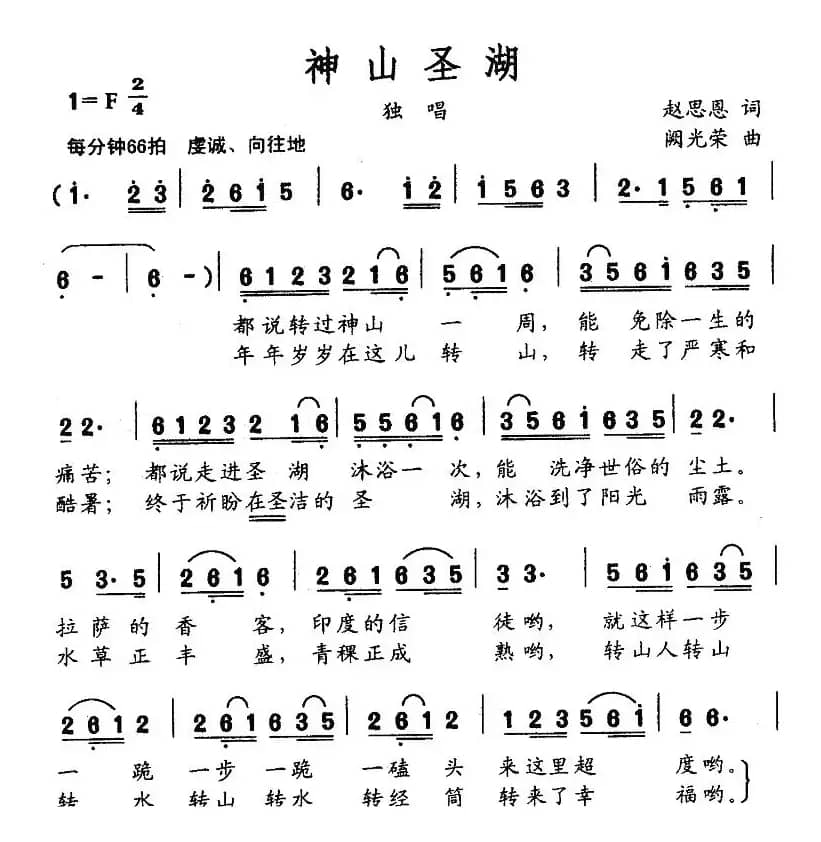 神山圣湖
1=F 2/4
独唱
赵思恩 词
每分钟66拍 虔诚、向往地
阙光荣 曲
(1· 2 3 | 2 6 1 5 | 6· 1 2 | 1 5 6 3 | 2· 1 5 6 1 |
6 - | 6 -) | 6 1 2 3 2 1 6 | 5 6 1 6 | 3 5 6 1 6 3 5 |
都说转过神山 一 周，能 免除一生的
年年岁岁在这儿 转 山，转 走了严寒和
2 2· | 6 1 2 3 2 1 6 | 5 5 6 1 6 | 3 5 6 1 6 3 5 | 2 2· |
痛苦；都说走进圣 湖 沐浴一 次，能 洗净世俗的 尘土。
酷暑；终于祈盼在圣洁的 圣 湖，沐浴到了阳光 雨露。
5 3· 5 | 2 6 1 6 | 2 6 1 6 3 5 | 3 3· | 5 6 1 6 3 5 |
拉萨的香 客，印度的信 徒哟，就这样一步
水草正丰 盛，青稞正成 熟哟，转山人转山
2 6 1 2 | 2 6 1 6 3 5 | 2 6 1 2 | 1 2 3 5 6 1 | 6 6· |
一 跪 一步 一跪 一磕 头 来这里超 度哟。
转 水 转山 转水 转经 筒 转来了幸 福哟。